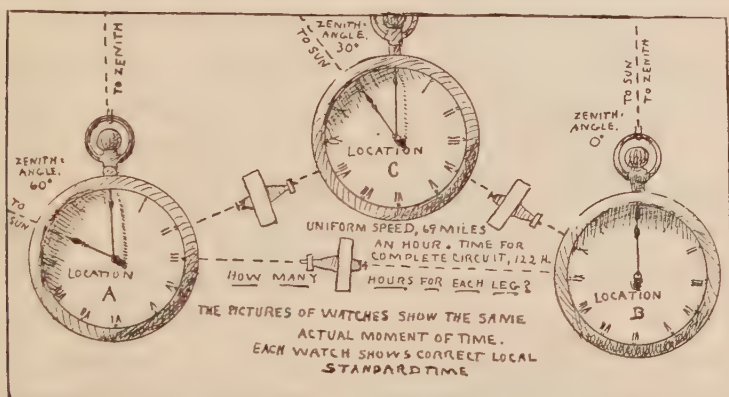 TO ZENITH
ZENITH-
ANGLE.
60°
TO
SUN
LOCATION
A
III
ZENITH-
ANGLE.
30°
TO SUN
LOCATION
C
ZENITH-
ANGLE.
0°
TO SUN
TO ZENITH
LOCATION
B
UNIFORM SPEED, 69 MILES
AN HOUR. TIME FOR
COMPLETE CIRCUIT, 122 H.
HOW MANY HOURS FOR EACH LEG?
THE PICTURES OF WATCHES SHOW THE SAME
ACTUAL MOMENT OF TIME.
EACH WATCH SHOWS CORRECT LOCAL
STANDARD TIME